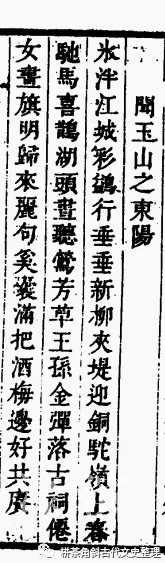 聞玉山之東陽
氷泮江城彩鷁行垂垂新柳夾堤迎銅駝嶺上春
馳馬喜鵲湖頭晝聽鶯芳草王孫金彈落古祠僊
女畫旗明歸來麗句奚囊滿把酒梅邊好共賡
栟茶角斜古代文史整理